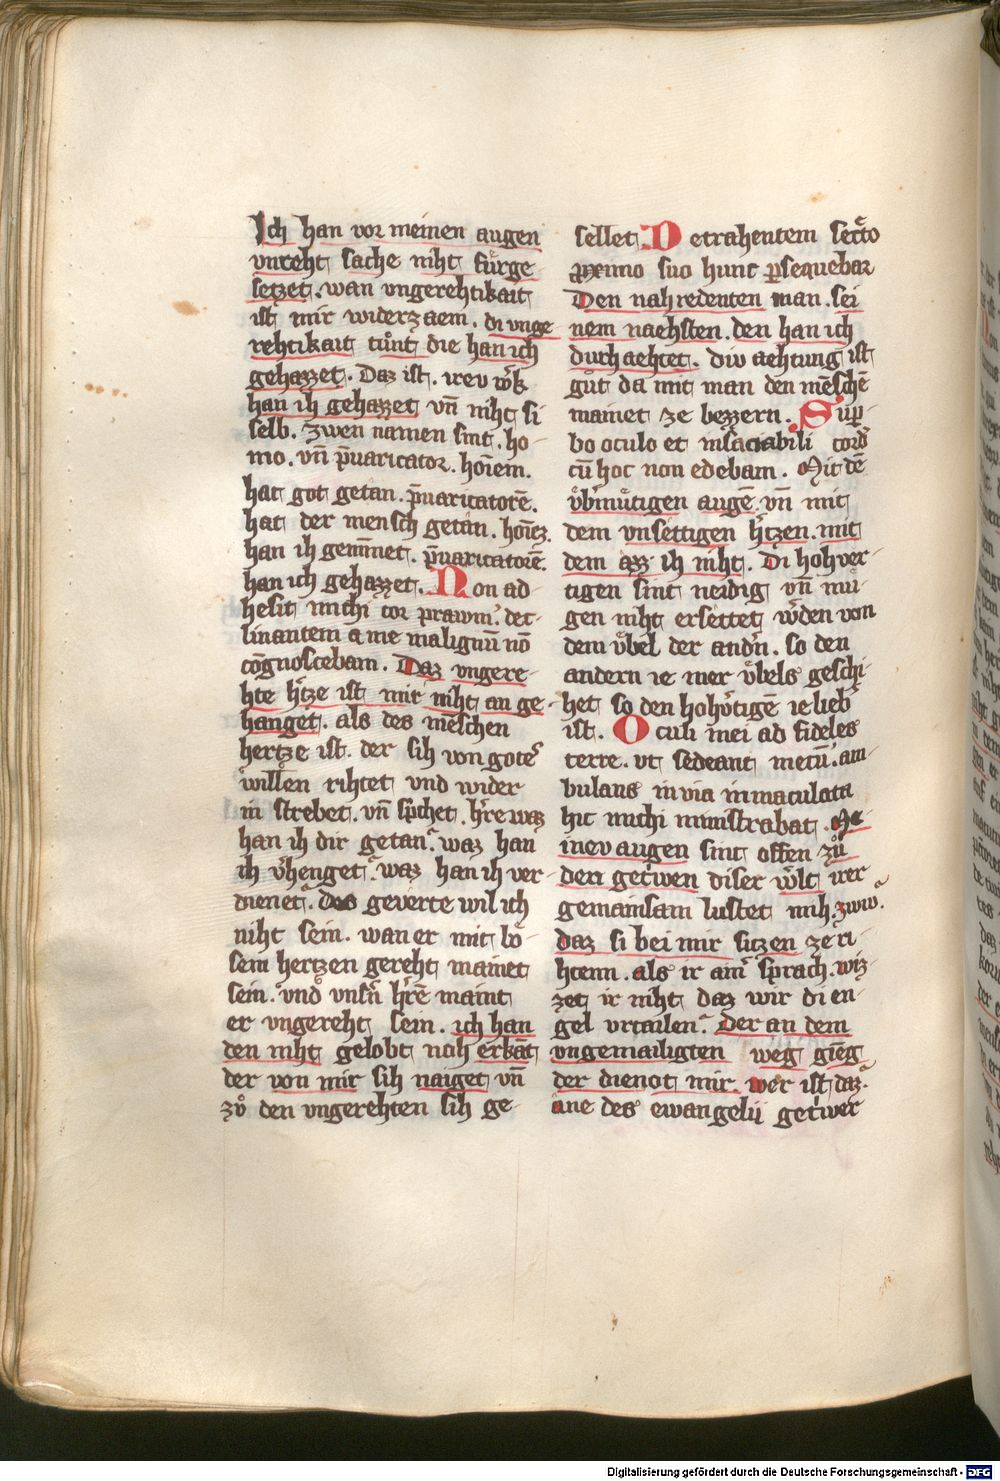 Ich han vor meinen augen
vnreht sache niht fuͤrge
setzet. wan vngerehtikait
ist mir widerzaem. di vnge
rehtikait tuͦnt die han ich
gehazzet. Daz ist. ireu w̓k
han ih gehazzet vn̄ niht si
selb. Zwen namen sint. ho-
mo. vn̄ p̄uaricator. hoīem.
hat got getan. p̄uaricatorē.
hat der mensch getan. hoīez.
han ih gemīnet. p̄uaricatorē.
han ich gehazzet. Non ad-
hesit michi cor prawm. dec-
linantem a me malignū nō
cōgnoscebam. Daz vngere-
hte h̓tze ist mir niht an ge-
hanget. als des mēschen
hertze ist. der sih von gotes
willen rihtet vnd wider
in strebet. vn̄ sp̓chet. h̓re waz
han ih dir getan. waz han
ih v̓henget. waz han ih ver-
dienet. des geverte wil ich
niht sein. wan er mit boͤ-
sem hertzen gereht mainet
sein. vnd vnsn̓ h̓rē maint
er vngereht sein. ich han
den niht gelobt noh erkāt
der von mir sih naiget vn̄
zuͦ den vngerehten sih ge-
sellet. Detrahentem secͬto
ꝓximo suo hunc ꝑsequebar
Den nahredenten man. sei
nem naehsten. den han ich
durhaehtet. div aehtung ist
guͦt da mit man den mēschē
mainet ze bezzern. Suꝑ-
bo oculo et insaciabili cord̓
cū hoc non edebam. Mit dē
vͤb̓muͤtigen augē vn̄ mit
dem vnsettigen h̓tzen. mit
dem azz ih niht. Di hohver-
tigen sint neidig vn̄ muͤ-
gen niht ersettet w̓den von
dem vͤbel der andn̓. so den
andern ie mer vͤbels geschi-
het so den hohv̓tigē ie lieb̓
ist. Oculi mei ad fideles
terre. vt sedeant mecū. am-
bulans in via inmaculata
hic michi ministrabat. Me-
inev augen sint offen zuͦ
den get̓wen diser w̓lt irer
gemainsam lustet mih. zwiv.
daz si bei mir sitzen ze ri-
htenn. als ir ains̓ sprach. wiz-
zet ir niht daz wir di en-
gel vrtailen. Der an dem
vngemailigten weg gieg
der dienot mir. wer ist daz.
ane des ewangelii get̓wer
Digitalisierung gefördert durch die Deutsche Forschungsgemeinschaft - DFG